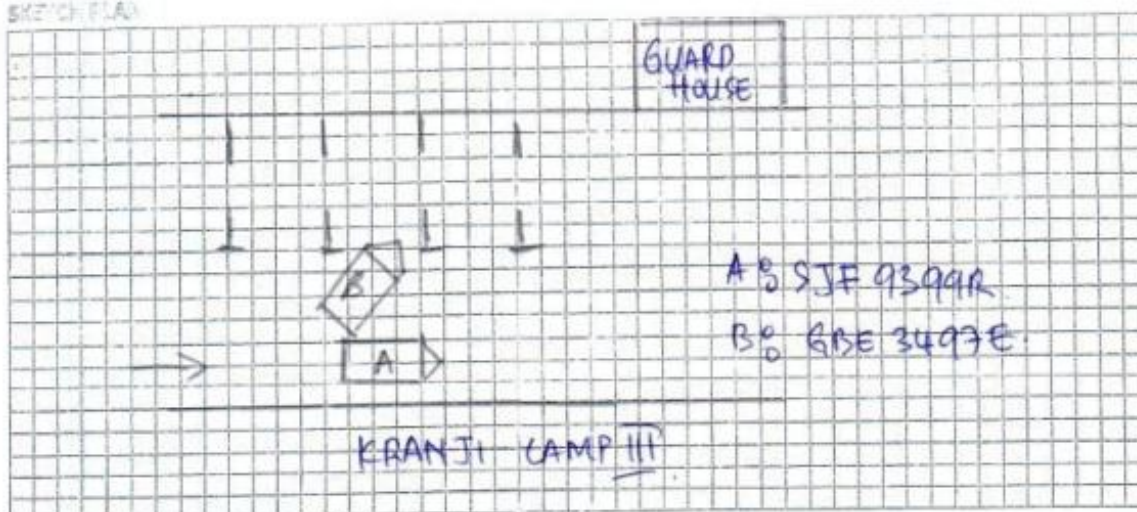 SKETCH PLAN
GUARD
HOUSE
B
A
A: SJF 9399R
B: GBE 3497E.
KRANJI CAMP III